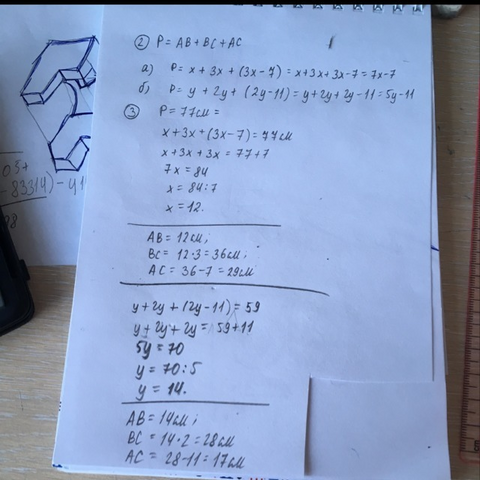 ② P = AB + BC + AC
а) P = x + 3x + (3x - 7) = x + 3x + 3x - 7 = 7x - 7
б) P = y + 2y + (2y - 11) = y + 2y + 2y - 11 = 5y - 11
③ P = 77см =
x + 3x + (3x - 7) = 77см
x + 3x + 3x = 77 + 7
7x = 84
x = 84 : 7
x = 12.
AB = 12см;
BC = 12·3 = 36см;
AC = 36 - 7 = 29см
y + 2y + (2y - 11) = 59
y + 2y + 2y = 59 + 11
5y = 70
y = 70 : 5
y = 14.
AB = 14см;
BC = 14·2 = 28см
AC = 28 - 11 = 17см